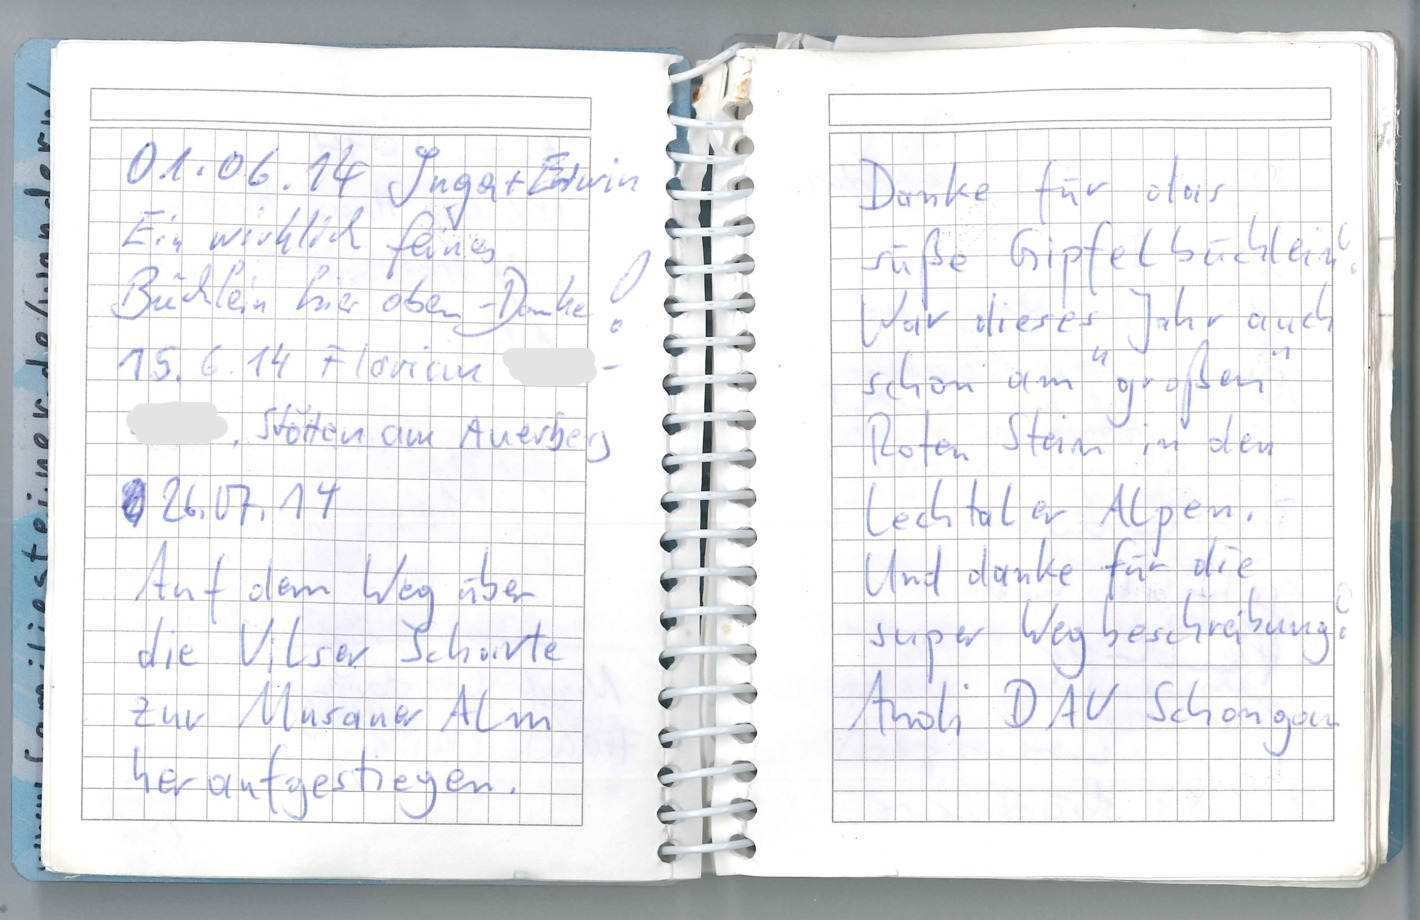 www.familiesteiner.de/wandern/
01.06.14 Inga + Erwin
Ein wirklich feines
Büchlein hier oben - Danke!
15.6.14 Florian -
, Stötten am Auerberg
26.07.14
Auf dem Weg über
die Vilser Scharte
zur Musauer Alm
heraufgestiegen.
Danke für das
süße Gipfelbüchlein!
War dieses Jahr auch
schon am "großen"
Roten Stein in den
Lechtaler Alpen.
Und danke für die
super Wegbeschreibung!
Andi DAV Schongau